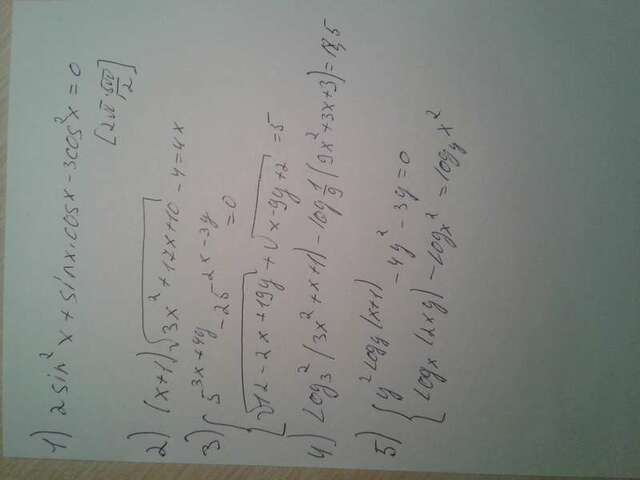 1) 2sin²x + sinx·cosx - 3cos²x = 0
[2π; 5π/2]
2) (x+1)√(3x²+12x+10) - 4 = 4x
3) { 5^(3x+4y) - 25^(-2x-3y) = 0
√(12-2x+19y) + √(x-9y+2) = 5
4) log₃²(3x²+x+1) - log 1/9 (9x²+3x+3) =
5) { y^(2log_y(x+1)) - 4y² - 3y = 0
log_x(2xy) - log x² = log_y x²